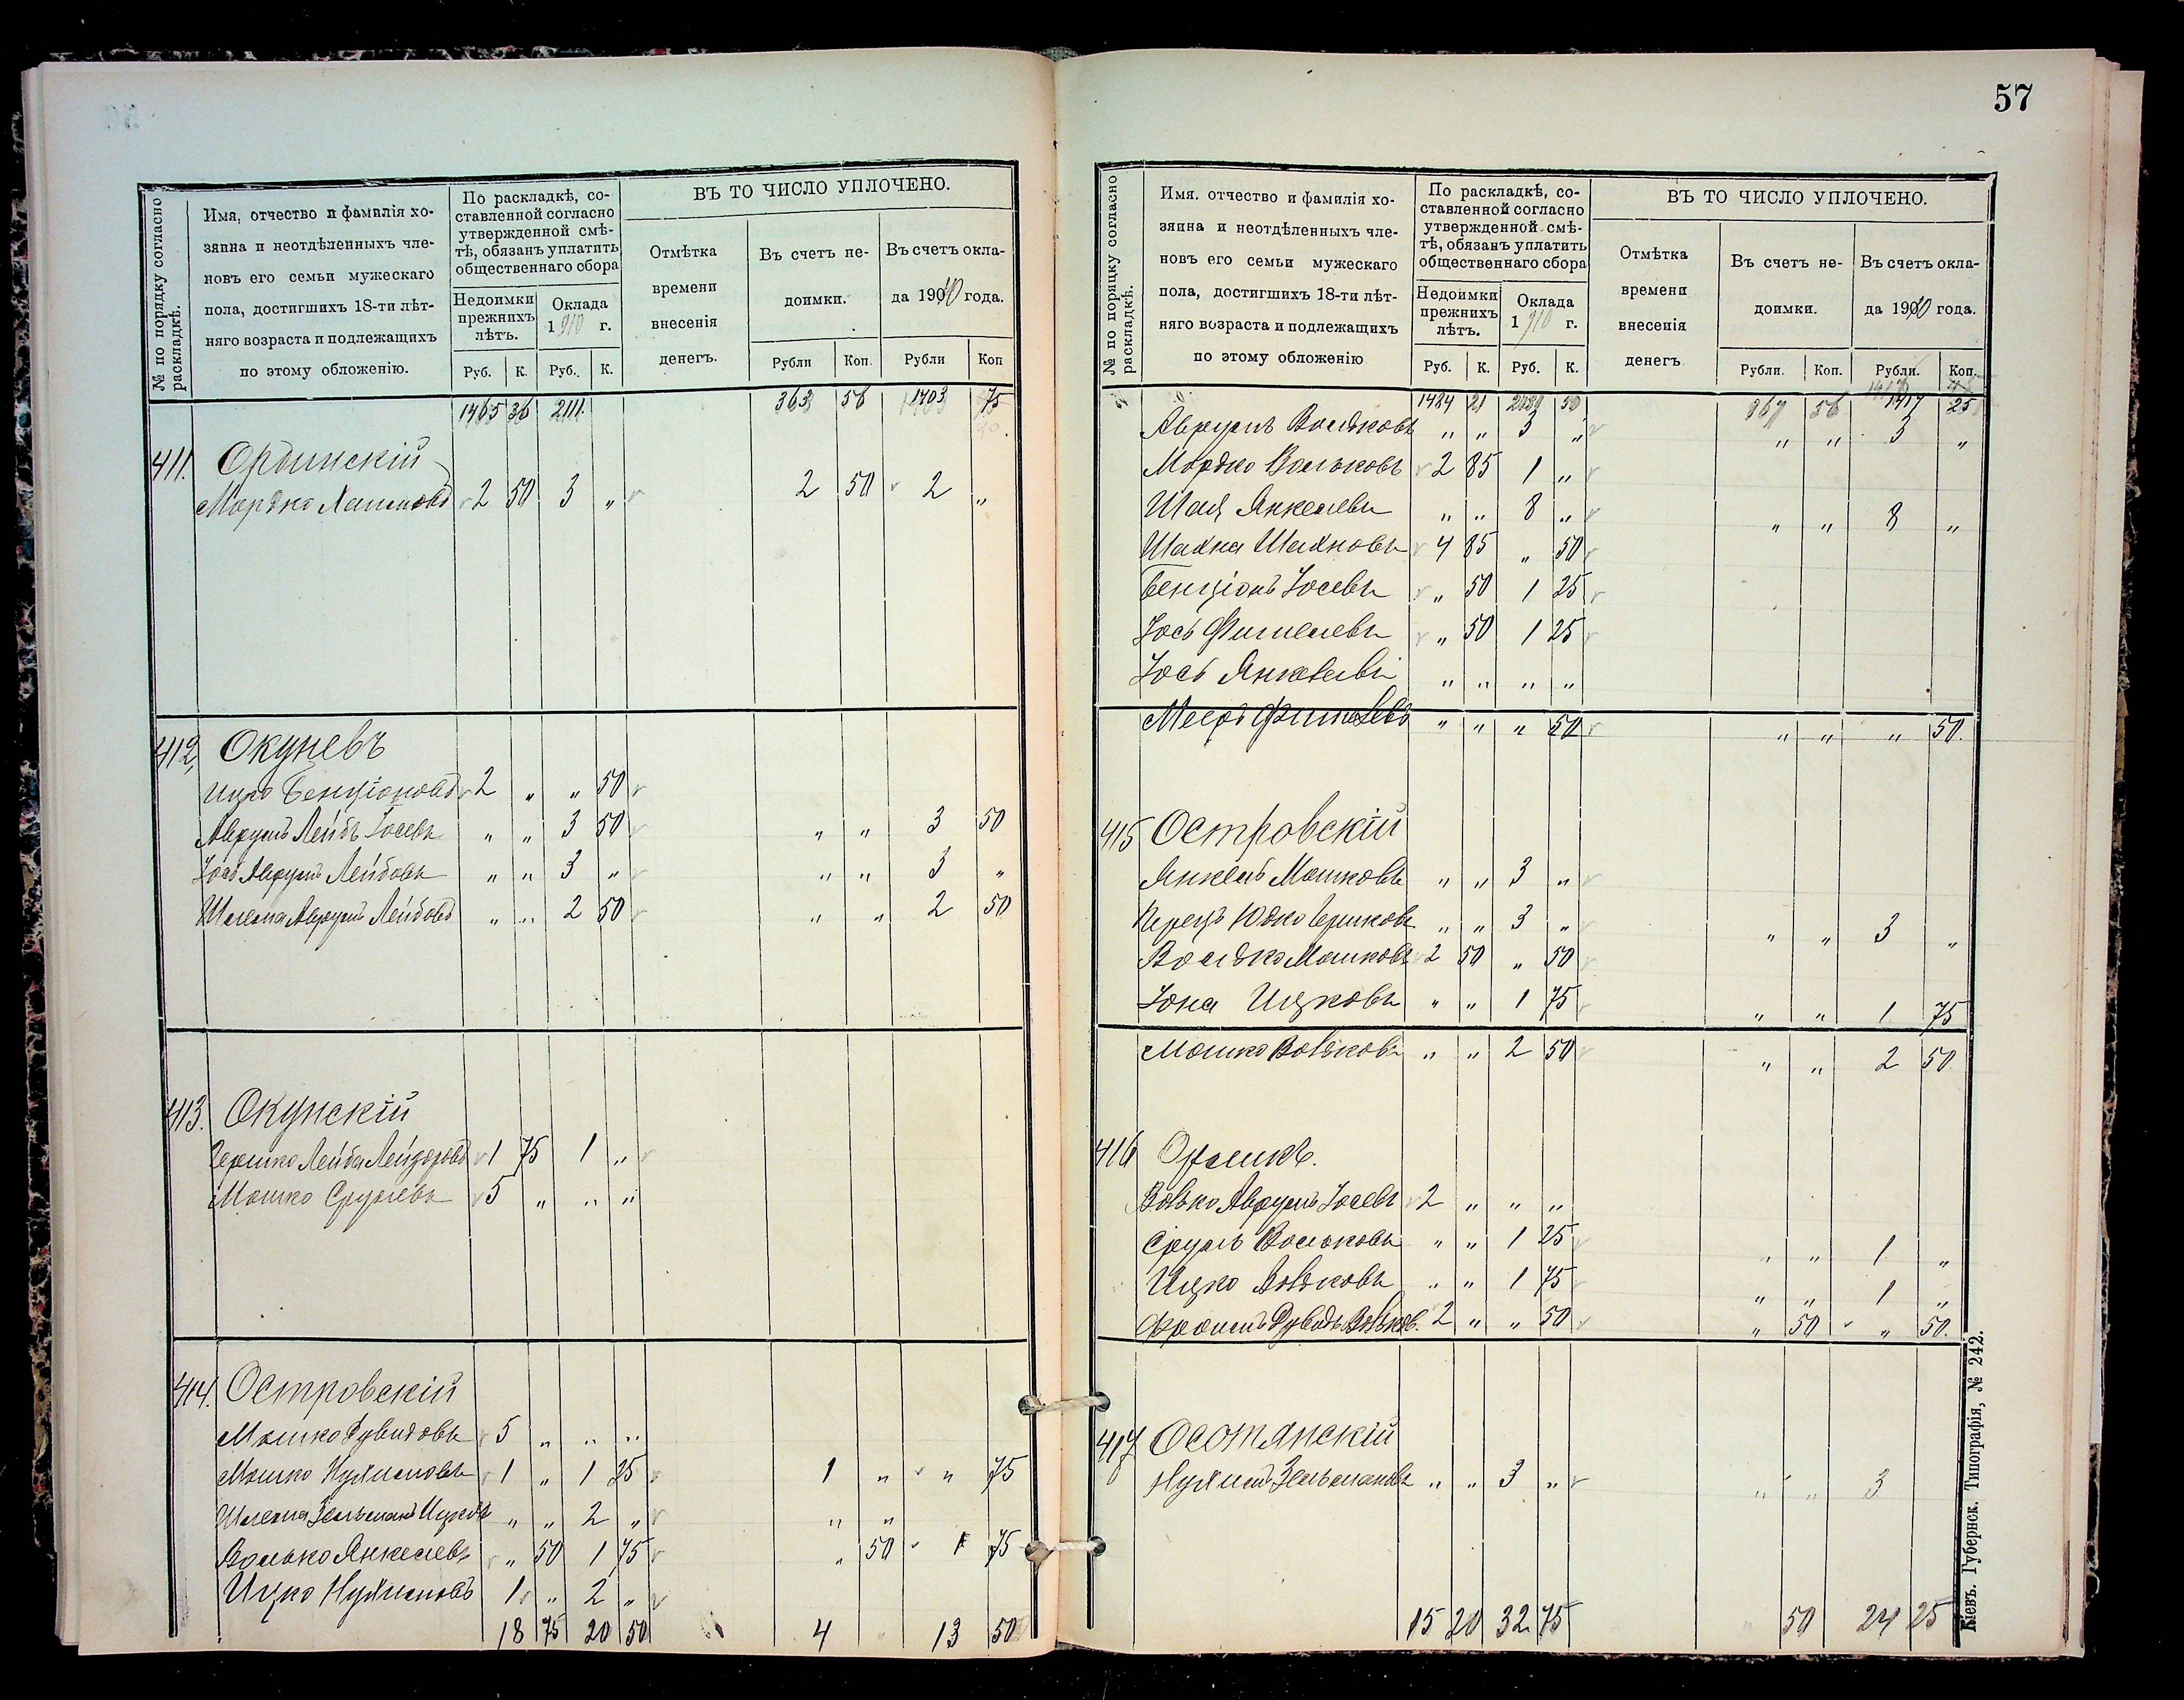 57
№ по порядку согласно раскладкѣ.
Имя, отчество и фамилія хозяина и неотдѣленныхъ членовъ его семьи мужескаго пола, достигшихъ 18-ти лѣтняго возраста и подлежащихъ по этому обложенію.
По раскладкѣ, составленной согласно утвержденной смѣтѣ, обязанъ уплатить общественнаго сбора
Недоимки прежнихъ лѣтъ.
Оклада 1910 г.
Руб. К. Руб. К.
ВЪ ТО ЧИСЛО УПЛОЧЕНО.
Отмѣтка времени внесенія денегъ.
Въ счетъ недоимки.
Въ счетъ оклада 1910 года.
Рубли Коп. Рубли Коп
1465 36 2111. 363 56 1403 75
411. Ординскій
Мордко Хаимовъ 2 50 3 „ 2 50 2 „
412, Окуневъ
Ицко Бенціоновъ 2 „ „ 50
Аврумъ Лейбъ Іосевъ „ „ 3 50 „ „ 3 50
Іось Аврумъ Лейбовъ „ „ 3 „ „ „ 3 „
Шлема Аврумъ Лейбовъ „ „ 2 50 „ „ 2 50
413. Окунскій
Гершко Лейба Лейзоровъ 1 75 1 „
Мошко Срулевъ 5 „ „ „
414. Островскій
Мошко Дувидовъ 5 „ „ „
Мошко Нухимовъ 1 „ 1 25 1 „ „ 75
Шлема Зельманъ Ицковъ „ „ 2 „ „ „
Волько Янкелевъ „ 50 1 75 „ 50 1 75
Ицко Нухимовъ 1 „ 2 „
18 75 20 50 4 „ 13 50
№ по порядку согласно раскладкѣ.
Имя. отчество и фамилія хозяина и неотдѣленныхъ членовъ его семьи мужескаго пола, достигшихъ 18-ти лѣтняго возраста и подлежащихъ по этому обложенію
По раскладкѣ, составленной согласно утвержденной смѣтѣ, обязанъ уплатить общественнаго сбора
Недоимки прежнихъ лѣтъ.
Оклада 1910 г.
Руб. К. Руб. К.
ВЪ ТО ЧИСЛО УПЛОЧЕНО.
Отмѣтка времени внесенія денегъ
Въ счетъ недоимки.
Въ счетъ оклада 1910 года.
Рубли. Коп. Рубли. Коп.
1484 21 50 367 56 1417 25
Аврумъ Вольковъ „ „ 3 „ „ „ 3 „
Мордко Вольковъ 2 85 1 „
Шая Янкелевъ „ „ 8 „ „ „ 8 „
Шахна Шахновъ 4 85 „ 50
Бенціонъ Іосевъ „ 50 1 25
Іось Фишелевъ „ 50 1 25
Іось Янкелевъ „ „ „ „
Мееръ Фишелевъ „ „ „ 50 „ „ „ 50.
415 Островскій
Янкель Мошковъ „ „ 3 „
Перецъ Юдко Гершковъ „ „ 3 „ „ „ 3 „
Волько Мошковъ 2 50 „ 50
Іона Ицковъ „ „ 1 75 „ „ 1 75
Мошко Вольковъ „ „ 2 50 „ „ 2 50.
416
Волько Аврумъ Іосевъ 2 „ „ „
Сруль Вольковъ „ „ 1 25 „ „ 1 „
Ицко Вольковъ „ „ 1 75 „ „ 1 „
Фроимъ Дувидъ Вольков. 2 „ „ 50 „ 50 „ 50.
417 Осотянскій
Нухимъ Зельмановъ „ „ 3 „ „ „ 3
15 20 32 75 50 24 25
Кіевъ. Губернск. Типографія, № 242.